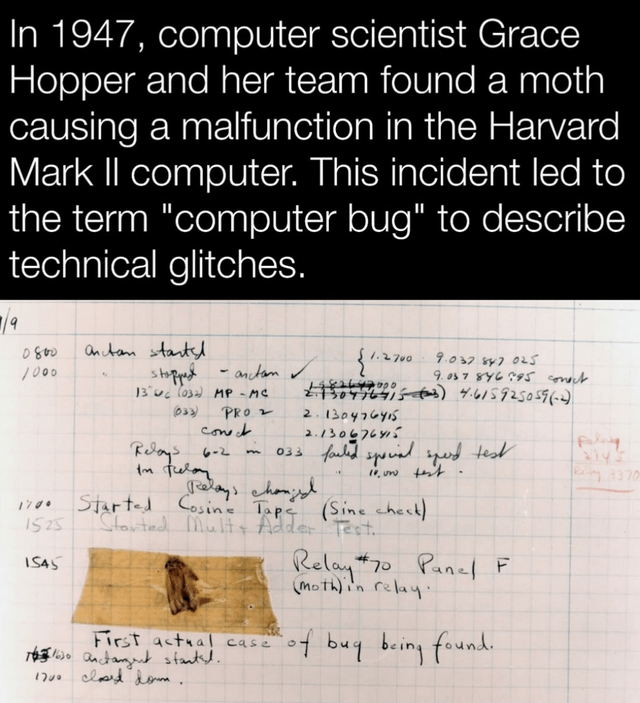 In 1947, computer scientist Grace
Hopper and her team found a moth
causing a malfunction in the Harvard
Mark II computer. This incident led to
the term "computer bug" to describe
technical glitches.
9
0800 antan started
1000 " stopped - antan ✓ { 1.2700 9.037 847 025
9.037 846 995 correct
13"uc (032) MP - MC 4.615925059(-2)
(033) PRO 2 2.130476415
correct 2.130676415
Relays 6-2 in 033 failed special speed test
in relay " 10,000 test.
Relays changed
Relay
3370
1700 Started Cosine Tape (Sine check)
1525 Started Mult + Adder Test.
1545 Relay #70 Panel F
(moth) in relay.
First actual case of bug being found.
1630 antangent started.
1700 closed down.